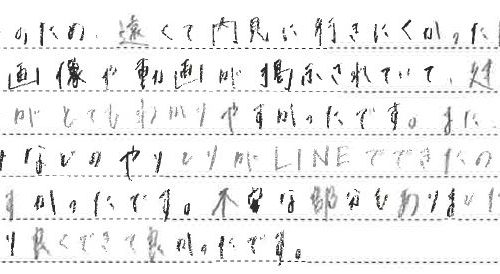 のため、遠くて内見に行きにくかった
画像や動画が掲示されていて、
がとてもわかりやすかったです。また、
などのやりとりがLINEでできたの
すかったです。不安な部分もありました
り良くできて良かったです。